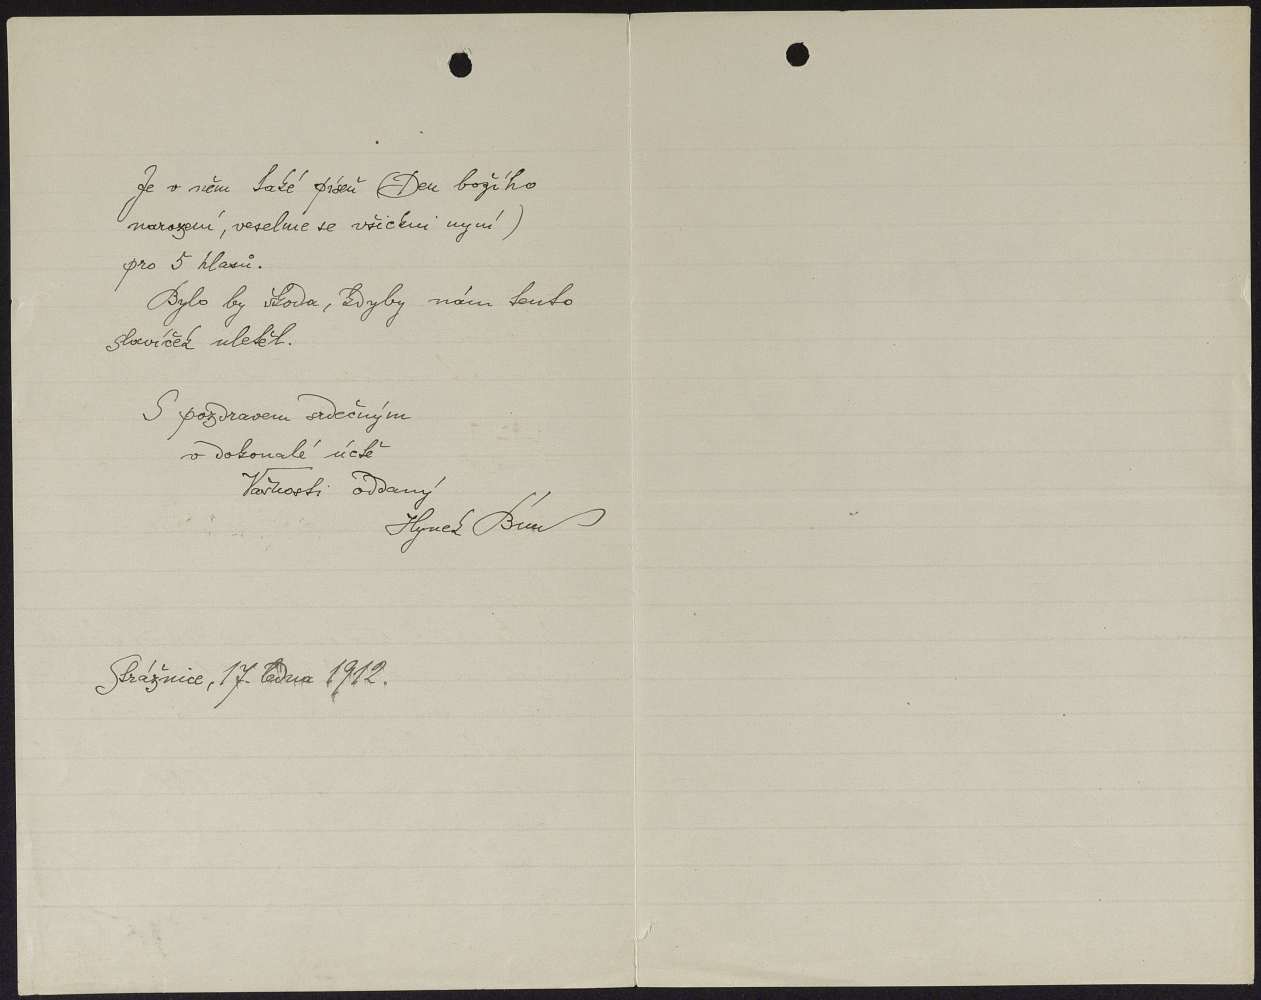 Je v něm také píseň (Den božího
narození, veselme se všickni nyní)
pro 5 hlasů.
Bylo by škoda, kdyby nám tento
slavíček uletěl.
S pozdravem srdečným
v dokonalé úctě
Vašnosti oddaný
Hynek Bím
Strážnice, 17. ledna 1912.